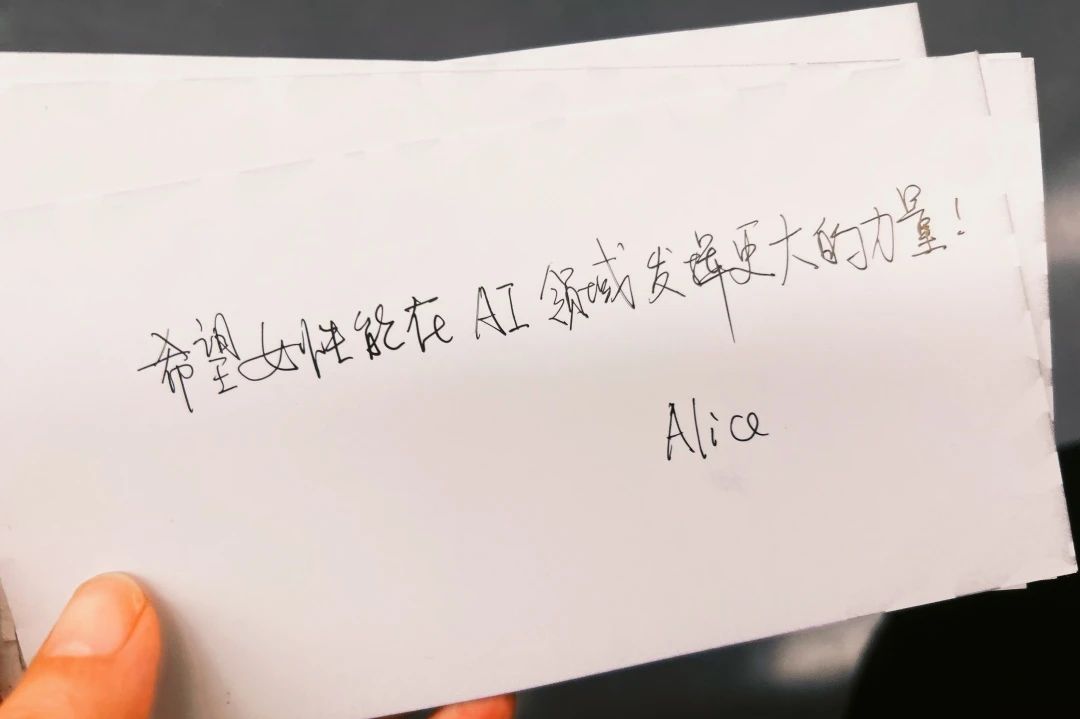 希望女性能在 AI 领域发挥更大的力量!
Alice